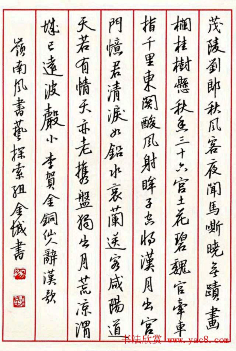 茂陵劉郎秋風客夜聞馬嘶曉無蹟畫
欄桂樹懸秋香三十六宮土花碧魏官牽車
指千里東關酸風射眸子空將漢月出宮
門憶君清淚如鉛水衰蘭送客咸陽道
天若有情天亦老攜盤獨出月荒涼渭
城已遠波聲小李賀金銅仙人辭漢歌
嶺南風書藝探索組金城書
书法欣赏
www.yac8.com